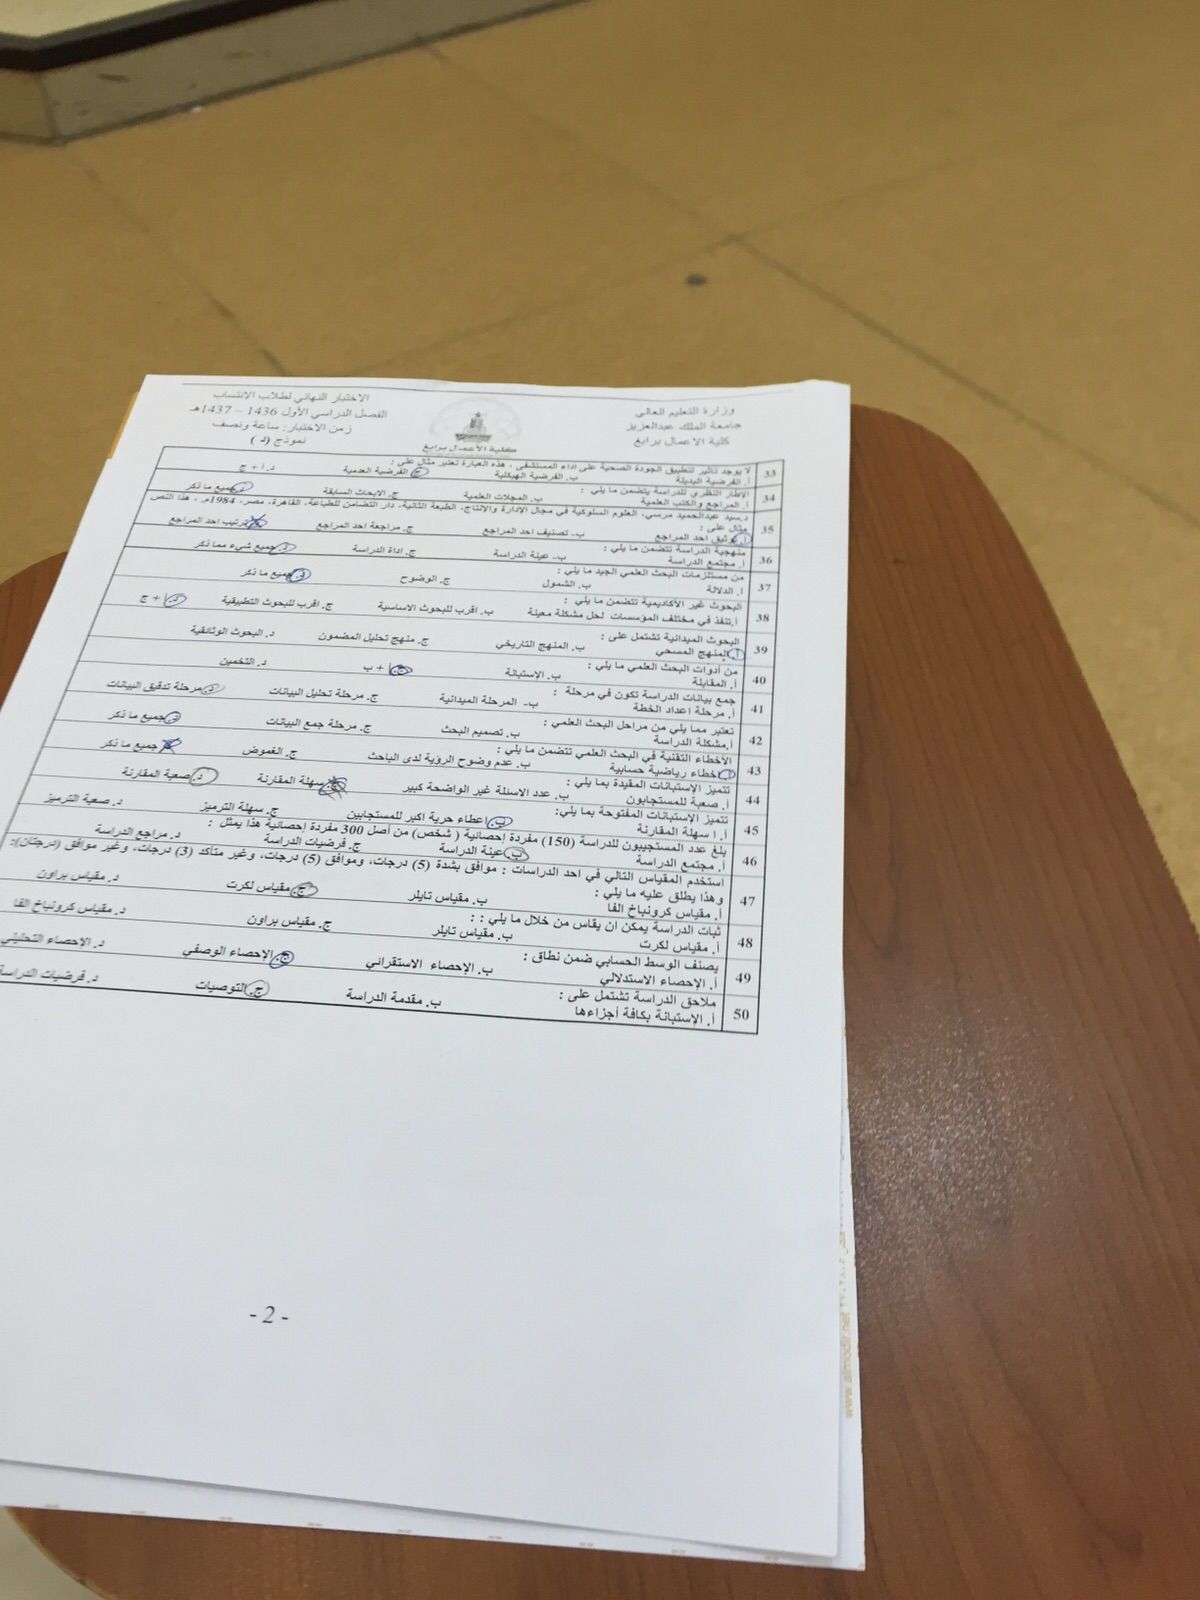 وزارة التعليم العالي
جامعة الملك عبدالعزيز
كلية الاعمال برابغ
كلية الأعمال برابغ
الاختبار النهائي لطلاب الانتساب
الفصل الدراسي الأول 1436 – 1437هـ
زمن الاختبار: ساعة ونصف
نموذج (د)
33 لا يوجد تاثير لتطبيق الجودة الصحية على اداء المستشفى ، هذه العبارة تعتبر مثال على :
أ. الفرضية البديلة ب. الفرضية الهيكلية ج. الفرضية العدمية د. أ + ج
34 الإطار النظري للدراسة يتضمن ما يلي :
أ. المراجع والكتب العلمية ب. المجلات العلمية ج. الابحاث السابقة د. جميع ما ذكر
35 د.سيد عبدالحميد مرسي، العلوم السلوكية في مجال الإدارة والإنتاج، الطبعة الثانية، دار التضامن للطباعة، القاهرة، مصر، 1984م. ، هذا النص
مثال على :
أ. توثيق احد المراجع ب- تصنيف احد المراجع ج. مراجعة احد المراجع د. ترتيب احد المراجع
36 منهجية الدراسة تتضمن ما يلي :
أ. مجتمع الدراسة ب- عينة الدراسة ج. اداة الدراسة د. جميع شيء مما ذكر
37 من مستلزمات البحث العلمي الجيد ما يلي :
أ. الدلالة ب. الشمول ج. الوضوح د. جميع ما ذكر
38 البحوث غير الأكاديمية تتضمن ما يلي :
أ.تنفذ في مختلف المؤسسات لحل مشكلة معينة ب. اقرب للبحوث الاساسية ج. اقرب للبحوث التطبيقية د. أ + ج
39 البحوث الميدانية تشتمل على :
أ. المنهج المسحي ب. المنهج التاريخي ج. منهج تحليل المضمون د. البحوث الوثائقية
40 من أدوات البحث العلمي ما يلي :
أ. المقابلة ب. الإستبانة ج. أ + ب د. التخمين
41 جمع بيانات الدراسة تكون في مرحلة :
أ. مرحلة اعداد الخطة ب- المرحلة الميدانية ج. مرحلة تحليل البيانات د. مرحلة تدقيق البيانات
42 تعتبر مما يلي من مراحل البحث العلمي :
أ.مشكلة الدراسة ب. تصميم البحث ج. مرحلة جمع البيانات د. جميع ما ذكر
43 الأخطاء التقنية في البحث العلمي تتضمن ما يلي :
أ. اخطاء رياضية حسابية ب. عدم وضوح الرؤية لدى الباحث ج. الغموض د. جميع ما ذكر
44 تتميز الإستبانات المقيدة بما يلي :
أ. صعبة للمستجابون ب. عدد الاسئلة غير الواضحة كبير ج. سهلة المقارنة د. صعبة المقارنة
45 تتميز الإستبانات المفتوحة بما يلي:
أ. ا سهلة المقارنة ب. اعطاء حرية اكبر للمستجابين ج. سهلة الترميز د. صعبة الترميز
46 بلغ عدد المستجيبون للدراسة (150) مفردة إحصائية ( شخص) من أصل 300 مفردة إحصائية هذا يمثل :
أ. مجتمع الدراسة ب. عينة الدراسة ج. فرضيات الدراسة د. مراجع الدراسة
47 استخدم المقياس التالي في احد الدراسات : موافق بشدة (5) درجات، وموافق (5) درجات، وغير متأكد (3) درجات، وغير موافق (درجتان):
وهذا يطلق عليه ما يلي :
أ. مقياس كرونباخ الفا ب. مقياس تايلر ج. مقياس لكرت د. مقياس براون
48 ثبات الدراسة يمكن ان يقاس من خلال ما يلي : :
أ. مقياس لكرت ب. مقياس تايلر ج. مقياس براون د. مقياس كرونباخ الفا
49 يصنف الوسط الحسابي ضمن نطاق :
أ. الإحصاء الاستدلالي ب. الإحصاء الاستقرائي ج. الإحصاء الوصفي د. الاحصاء التحليلي
50 ملاحق الدراسة تشتمل على :
أ. الإستبانة بكافة أجزاءها ب. مقدمة الدراسة ج. التوصيات د. فرضيات الدراسة
- 2 -
www.almodir.net